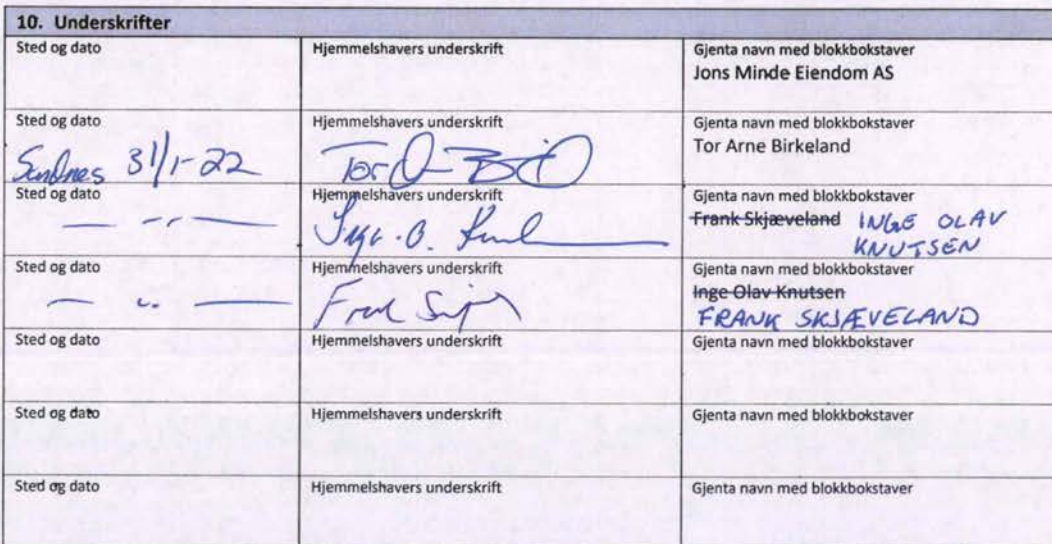 10. Underskrifter
Sted og dato Hjemmelshavers underskrift Gjenta navn med blokkbokstaver
Jons Minde Eiendom AS
Sted og dato Hjemmelshavers underskrift Gjenta navn med blokkbokstaver
Tor Arne Birkeland
Sandnes 31/1-22 Tor
Sted og dato Hjemmelshavers underskrift Gjenta navn med blokkbokstaver
— " — Frank Skjæveland INGE OLAV
KNUTSEN
Sted og dato Hjemmelshavers underskrift Gjenta navn med blokkbokstaver
Inge Olav Knutsen
— " — FRANK SKJÆVELAND
Sted og dato Hjemmelshavers underskrift Gjenta navn med blokkbokstaver
Sted og dato Hjemmelshavers underskrift Gjenta navn med blokkbokstaver
Sted og dato Hjemmelshavers underskrift Gjenta navn med blokkbokstaver